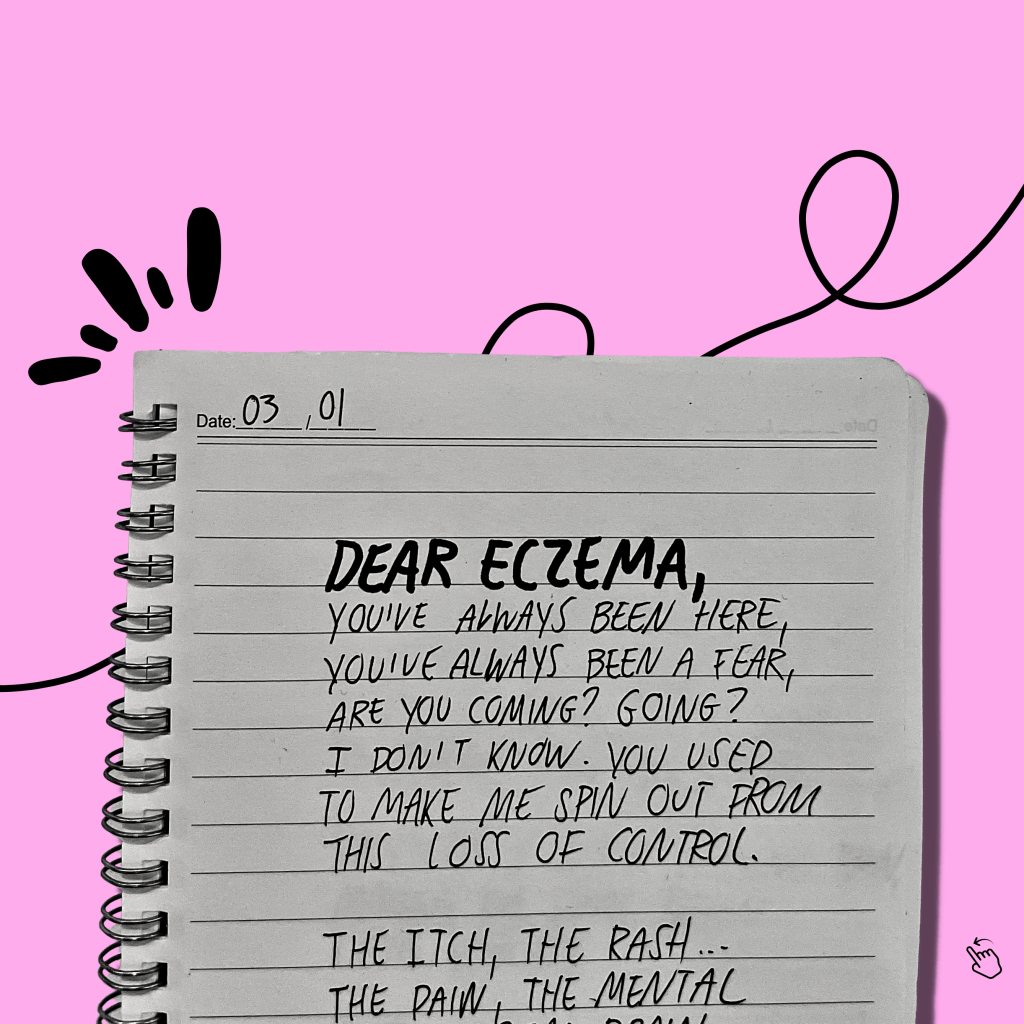 Date: 03 / 01
DEAR ECZEMA,
YOU'VE ALWAYS BEEN HERE,
YOU'VE ALWAYS BEEN A FEAR,
ARE YOU COMING? GOING?
I DON'T KNOW. YOU USED
TO MAKE ME SPIN OUT FROM
THIS LOSS OF CONTROL.
THE ITCH, THE RASH...
THE PAIN, THE MENTAL